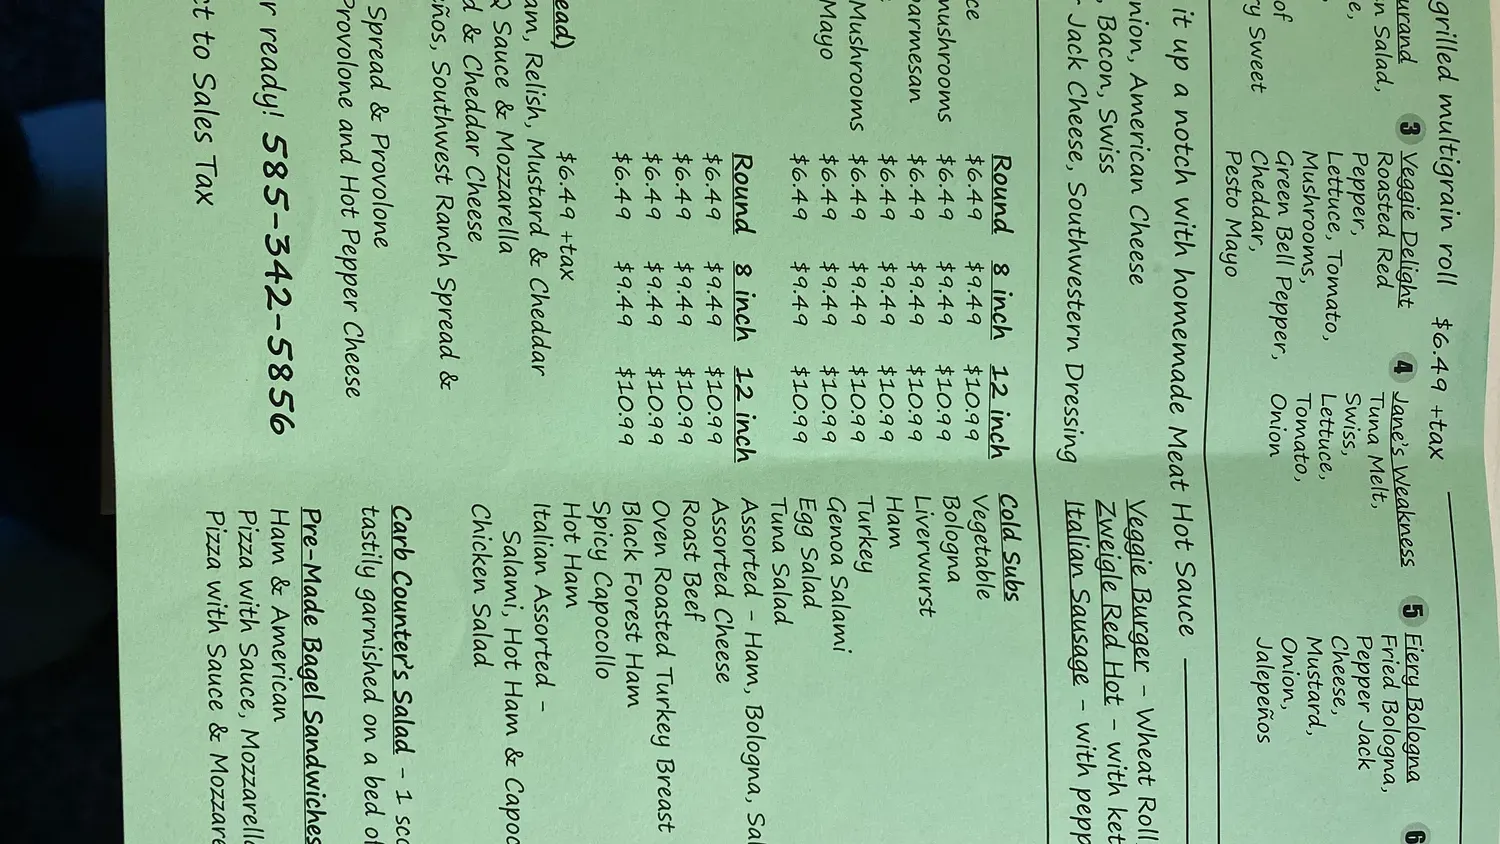 grilled multigrain roll $6.49 +tax
urand
n Salad,
e,
of
ry Sweet
3 Veggie Delight
Roasted Red
Pepper,
Lettuce, Tomato,
Mushrooms,
Green Bell Pepper,
Cheddar,
Pesto Mayo
4 Jane's Weakness
Tuna Melt,
Swiss,
Lettuce,
Tomato,
Onion
5 Fiery Bologna
Fried Bologna,
Pepper Jack
Cheese,
Mustard,
Onion,
Jalepeños
6
it up a notch with homemade Meat Hot Sauce
nion, American Cheese
, Bacon, Swiss
r Jack Cheese, Southwestern Dressing
Veggie Burger - Wheat Roll
Zweigle Red Hot - with ket
Italian Sausage - with pepp
Round 8 inch 12 inch
ce $6.49 $9.49 $10.99
mushrooms $6.49 $9.49 $10.99
$6.49 $9.49 $10.99
armesan $6.49 $9.49 $10.99
Mushrooms $6.49 $9.49 $10.99
Mayo $6.49 $9.49 $10.99
$6.49 $9.49 $10.99
Round 8 inch 12 inch
$6.49 $9.49 $10.99
$6.49 $9.49 $10.99
$6.49 $9.49 $10.99
$6.49 $9.49 $10.99
ead) $6.49 +tax
am, Relish, Mustard & Cheddar
Q Sauce & Mozzarella
d & Cheddar Cheese
eños, Southwest Ranch Spread &
Spread & Provolone
Provolone and Hot Pepper Cheese
r ready! 585-342-5856
ct to Sales Tax
Cold Subs
Vegetable
Bologna
Liverwurst
Ham
Turkey
Genoa Salami
Egg Salad
Tuna Salad
Assorted - Ham, Bologna, Sal
Assorted Cheese
Roast Beef
Oven Roasted Turkey Breast
Black Forest Ham
Spicy Capocollo
Hot Ham
Italian Assorted -
Salami, Hot Ham & Capoc
Chicken Salad
Carb Counter's Salad - 1 sco
tastily garnished on a bed of
Pre-Made Bagel Sandwiches
Ham & American
Pizza with Sauce, Mozzarella
Pizza with Sauce & Mozzare